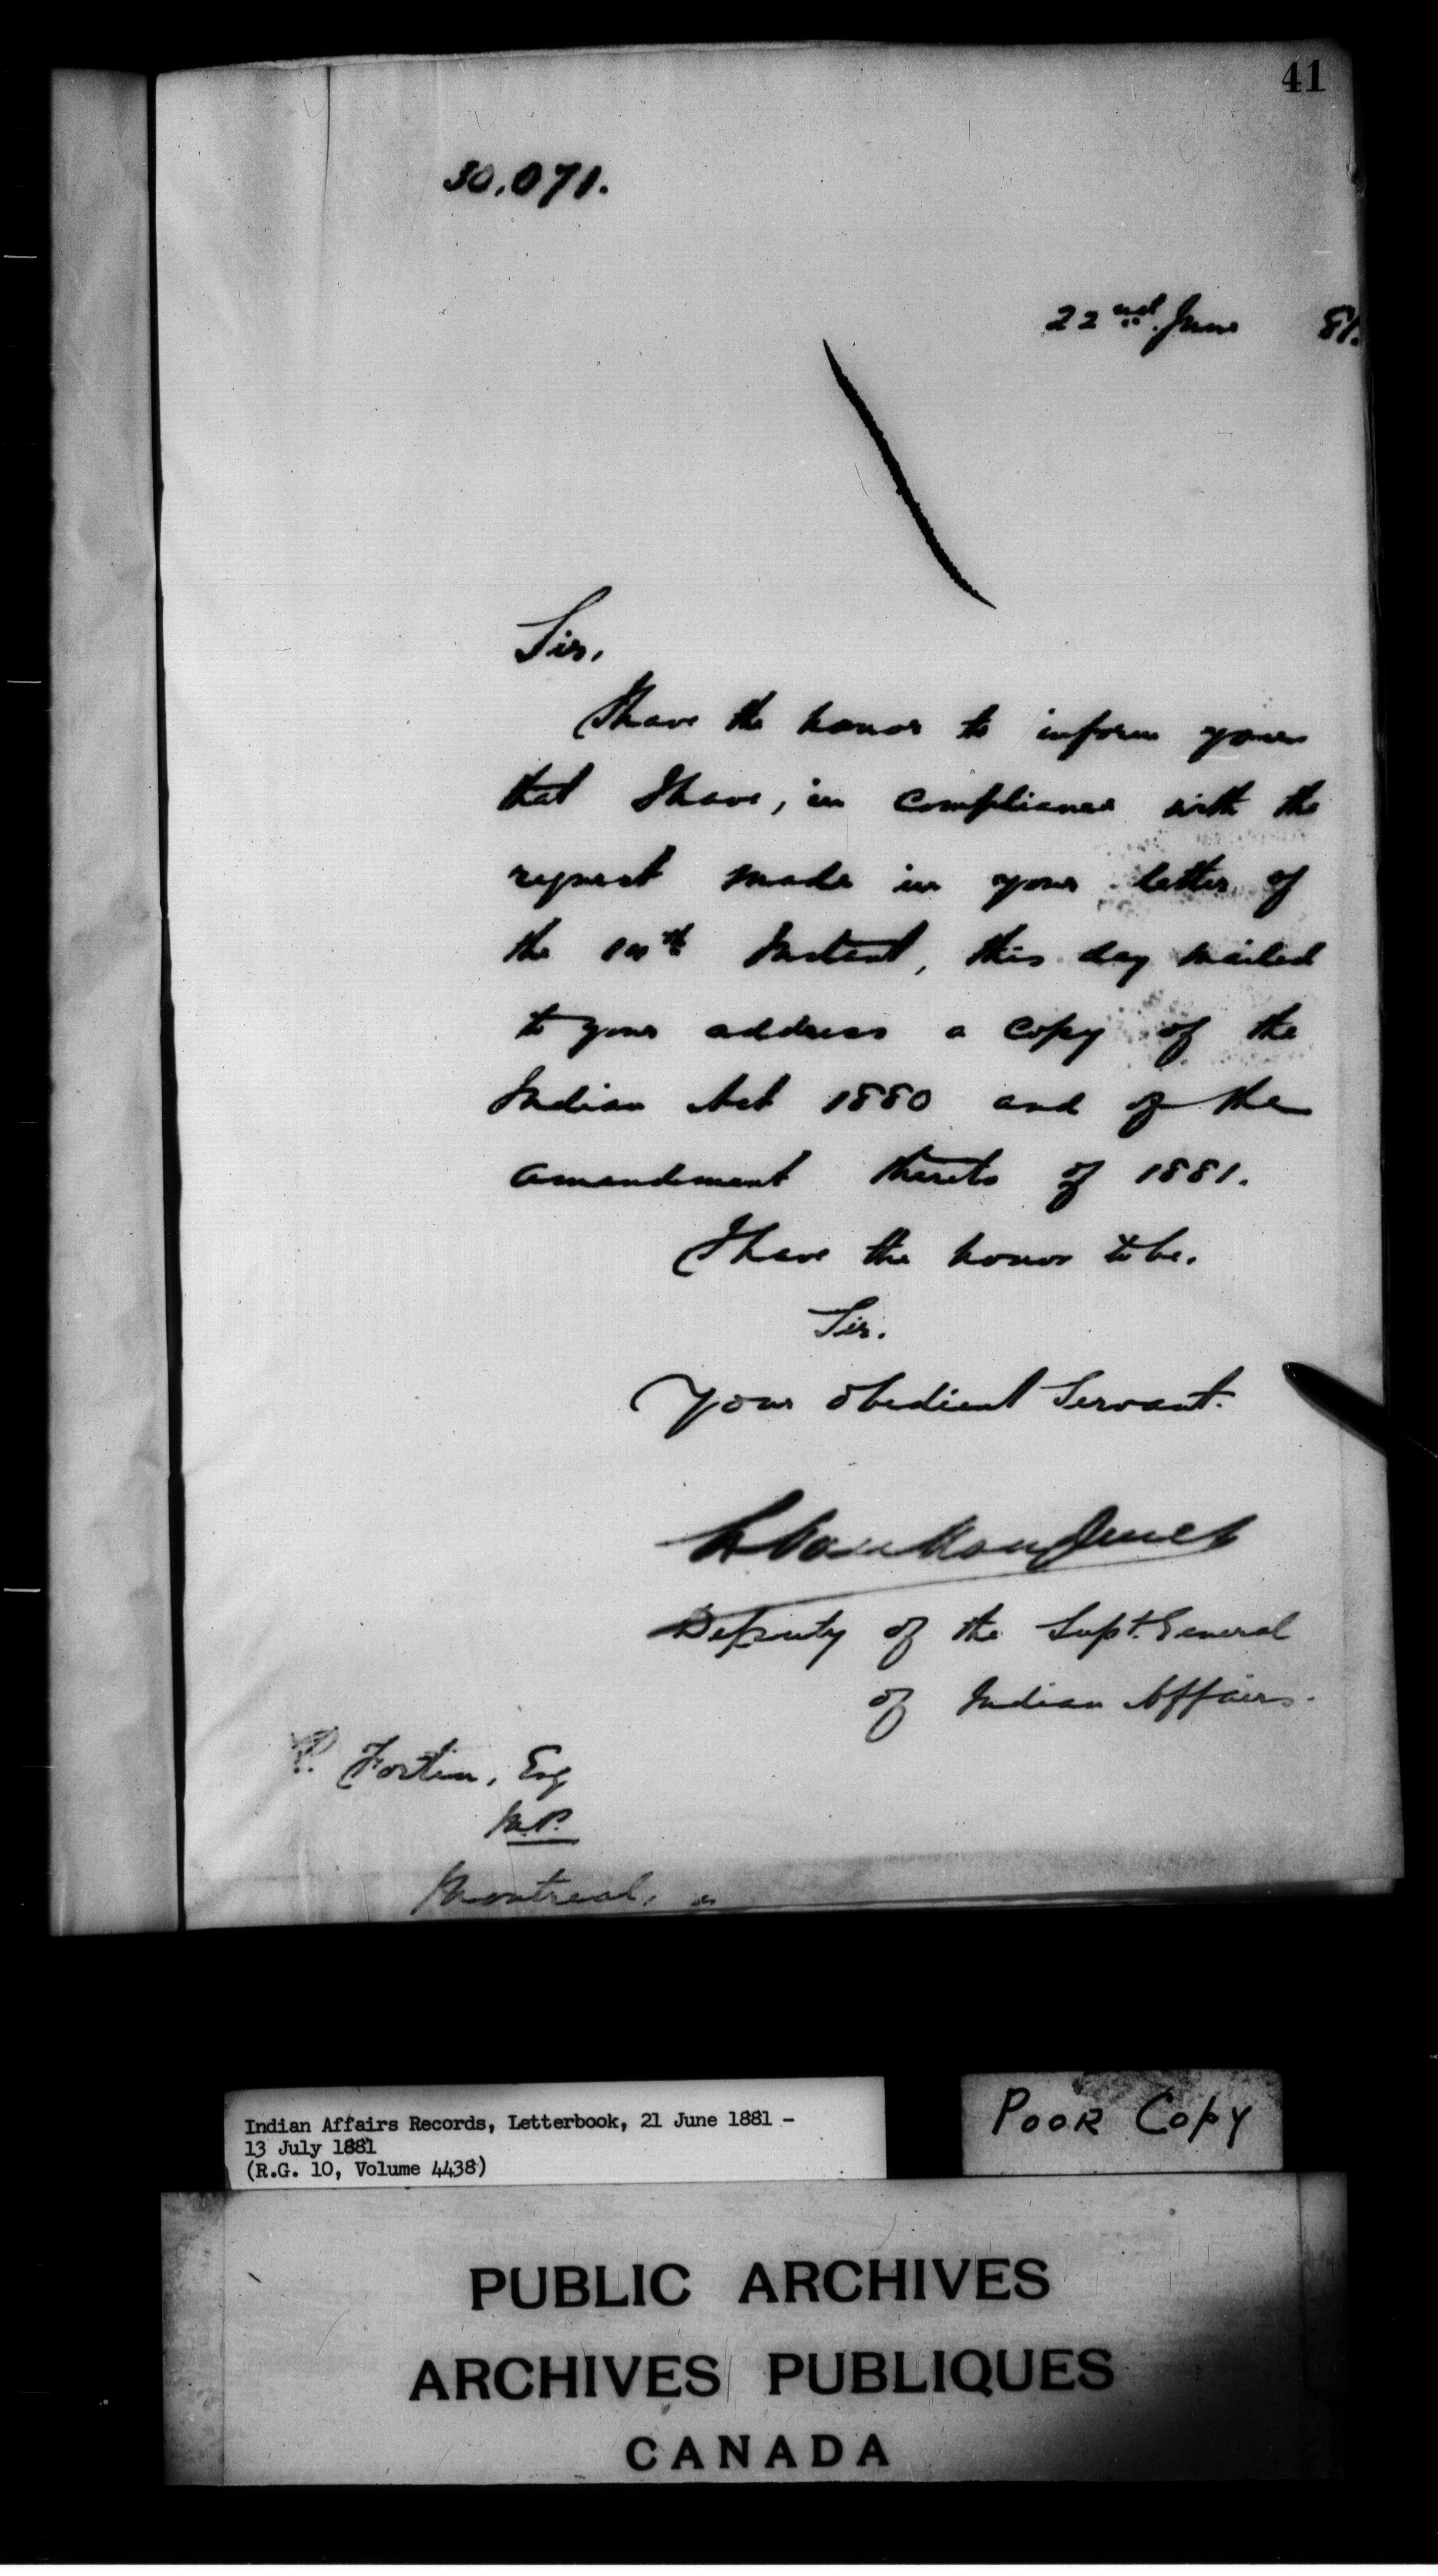 41
30,071.
22nd. June 81.
Sir,
I have the honor to inform you
that I have, in compliance with the
request made in your letter of
the Instant, this day mailed
to your address a copy of the
Indian Act 1880 and of the
amendment thereto of 1881.
I have the honor to be.
Sir.
Your obedient Servant.
L. VanKoughnet
Deputy of the Supt. General
of Indian Affairs.
P. Fortin, Esq
M.P.
Montreal.
Indian Affairs Records, Letterbook, 21 June 1881 -
13 July 1881
(R.G. 10, Volume 4438)
POOR COPY
PUBLIC ARCHIVES
ARCHIVES PUBLIQUES
CANADA